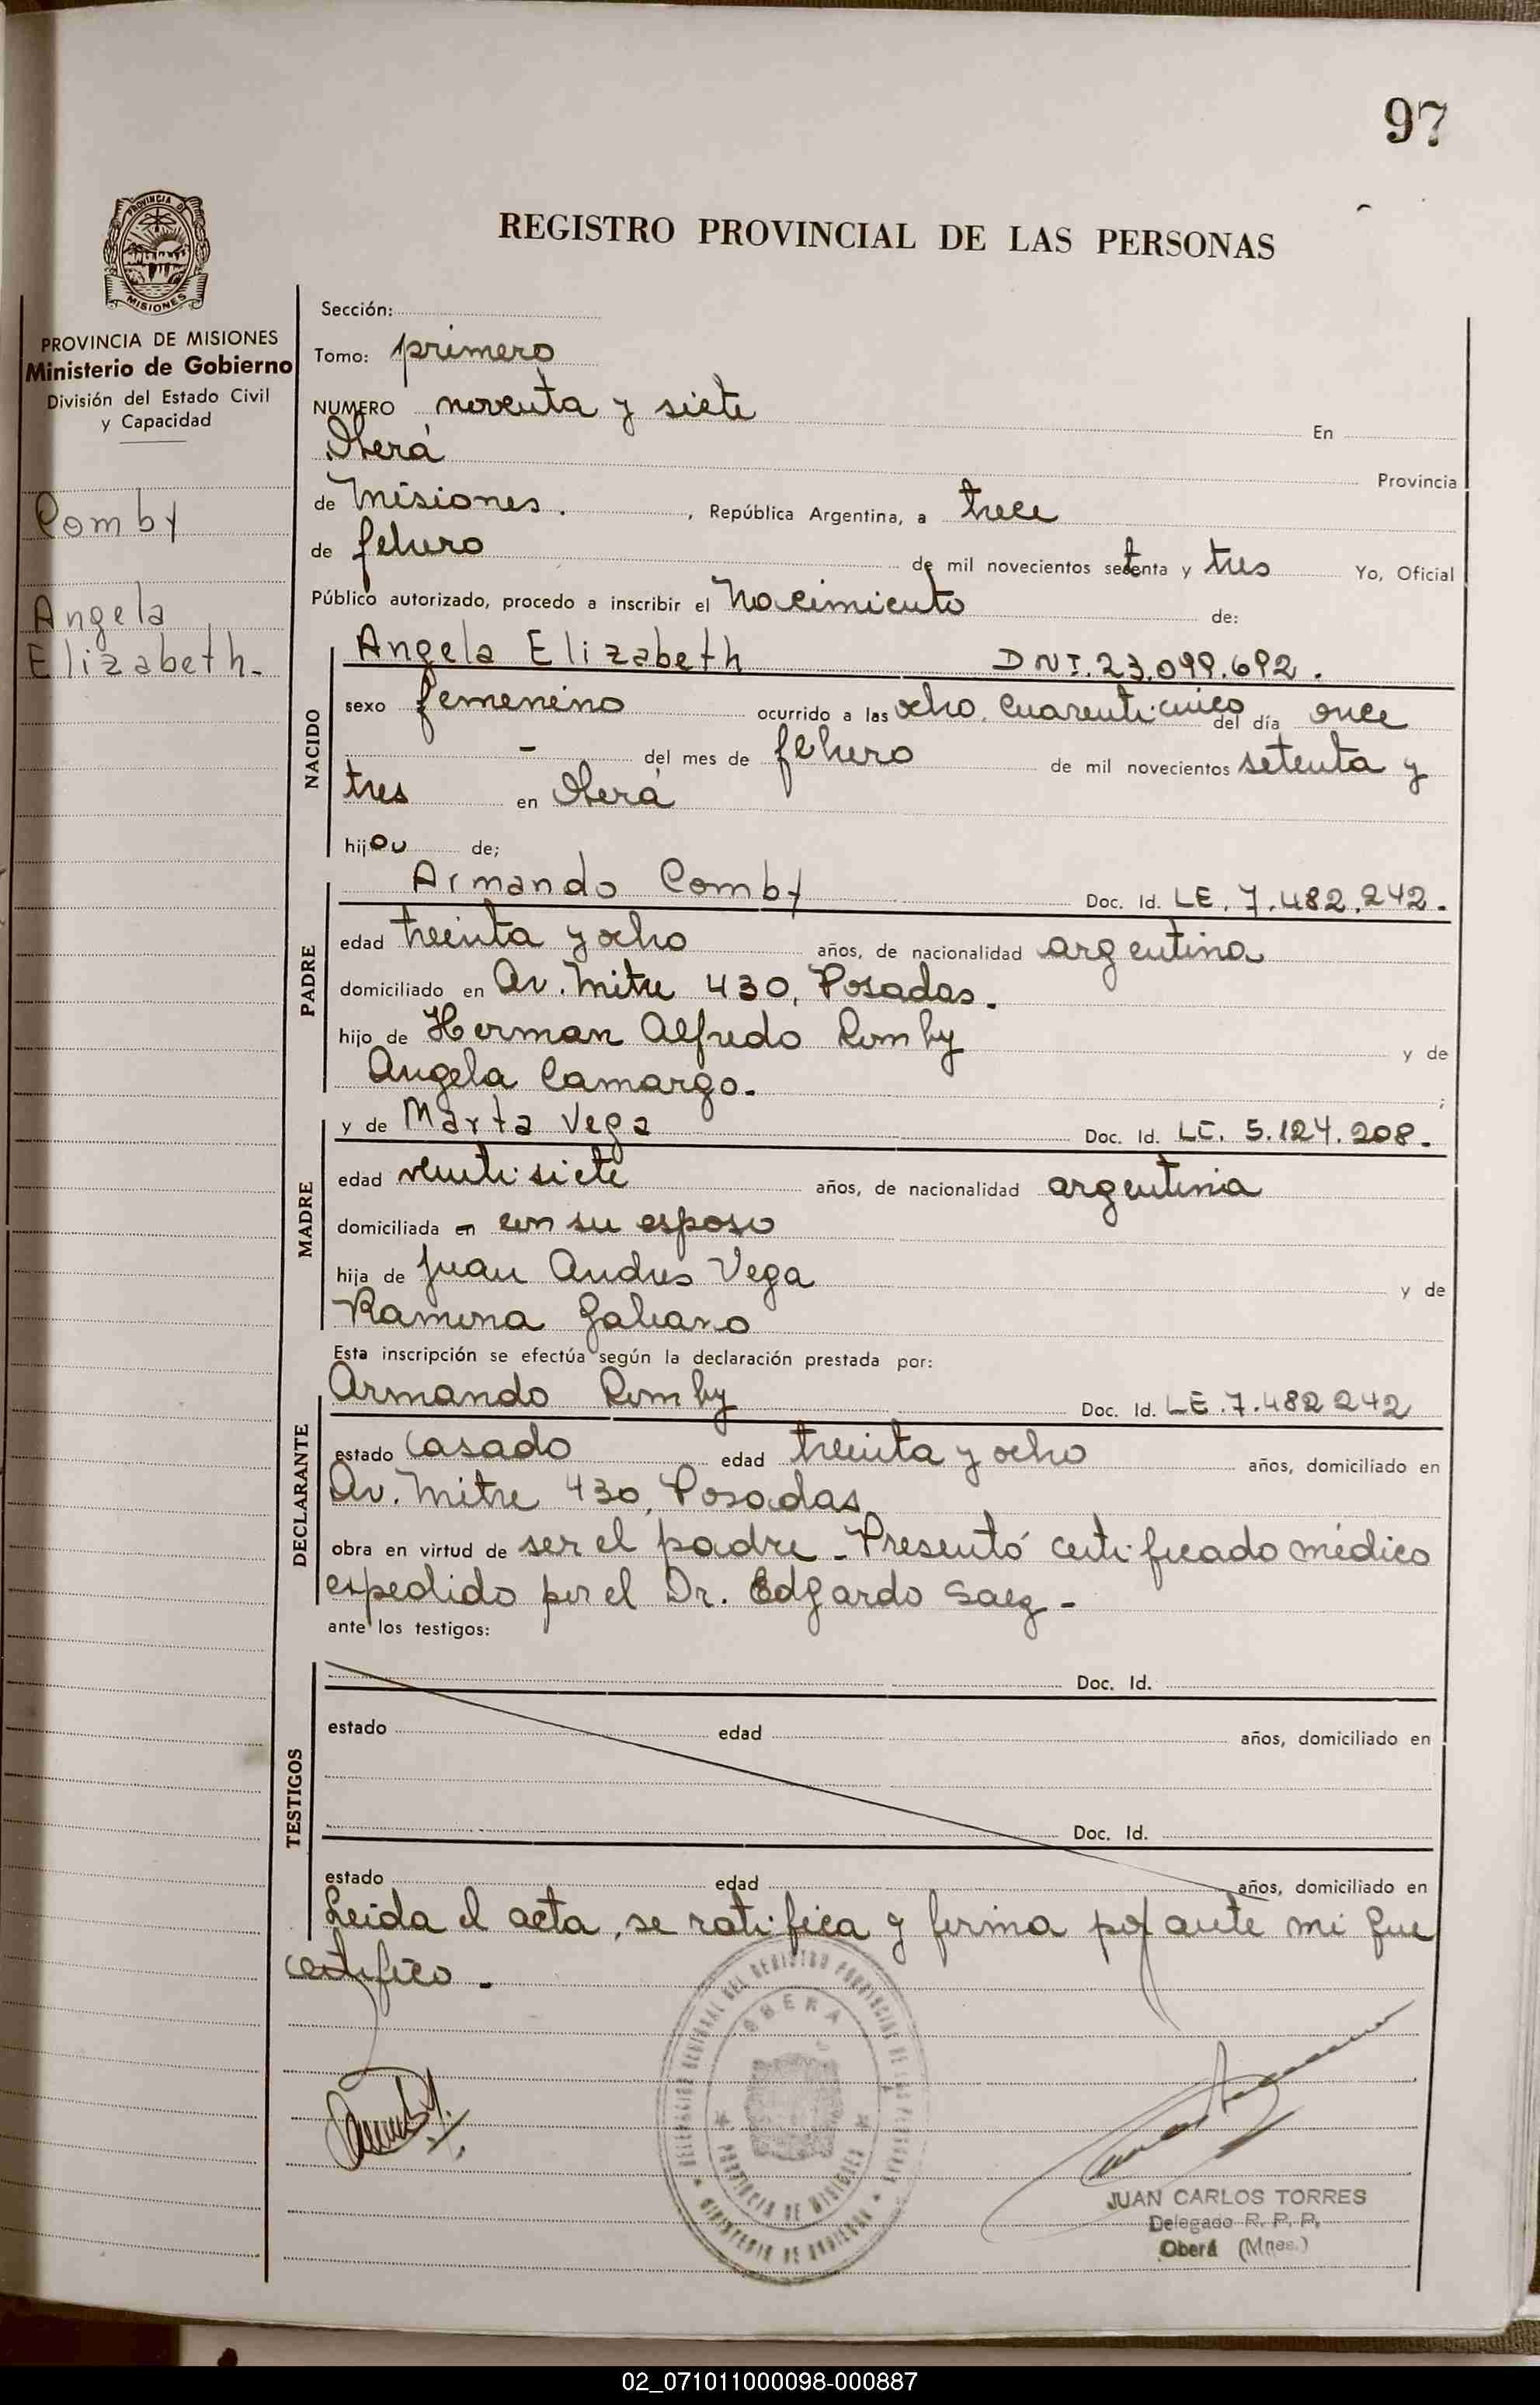 97
REGISTRO PROVINCIAL DE LAS PERSONAS
PROVINCIA DE
MISIONES
PROVINCIA DE MISIONES
Ministerio de Gobierno
División del Estado Civil
y Capacidad
Comby
Angela
Elizabeth.
Sección:
Tomo: primero
NUMERO noventa y siete En
Oberá Provincia
de Misiones. , República Argentina, a trece
de febrero de mil novecientos setenta y tres Yo, Oficial
Público autorizado, procedo a inscribir el Nacimiento de:
NACIDO
Angela Elizabeth DNI. 23.099.692.
sexo femenino ocurrido a las ocho, cuarenticinco del día once
- del mes de febrero de mil novecientos setenta y
tres en Oberá
hij de;
PADRE
Armando Comby Doc. Id. LE. 7.482.242.
edad treinta y ocho años, de nacionalidad argentina
domiciliado en Av. Mitre 430, Posadas.
hijo de Herman Alfredo Comby y de
Angela Camargo. ;
MADRE
y de Marta Vega Doc. Id. LC. 5.124.208.
edad veintisiete años, de nacionalidad argentina
domiciliada en con su esposo
hija de Juan Andres Vega y de
Ramona Galeano
Esta inscripción se efectúa según la declaración prestada por:
DECLARANTE
Armando Comby Doc. Id. LE. 7.482 242
estado casado edad treinta y ocho años, domiciliado en
Av. Mitre 430, Posadas
obra en virtud de ser el padre - Presentó certificado médico
expedido por el Dr. Edgardo Saez -
ante los testigos:
TESTIGOS
Doc. Id.
estado edad años, domiciliado en
Doc. Id.
estado edad años, domiciliado en
Leida el acta, se ratifica y firma por ante mi que
certifico -
DELEGACION REGIONAL DEL REGISTRO PROVINCIAL DE LAS PERSONAS
OBERA
PROVINCIA DE MISIONES
MINISTERIO DE GOBIERNO
JUAN CARLOS TORRES
Delegado R. P. P.
Oberá (Mnes.)
02_071011000098-000887